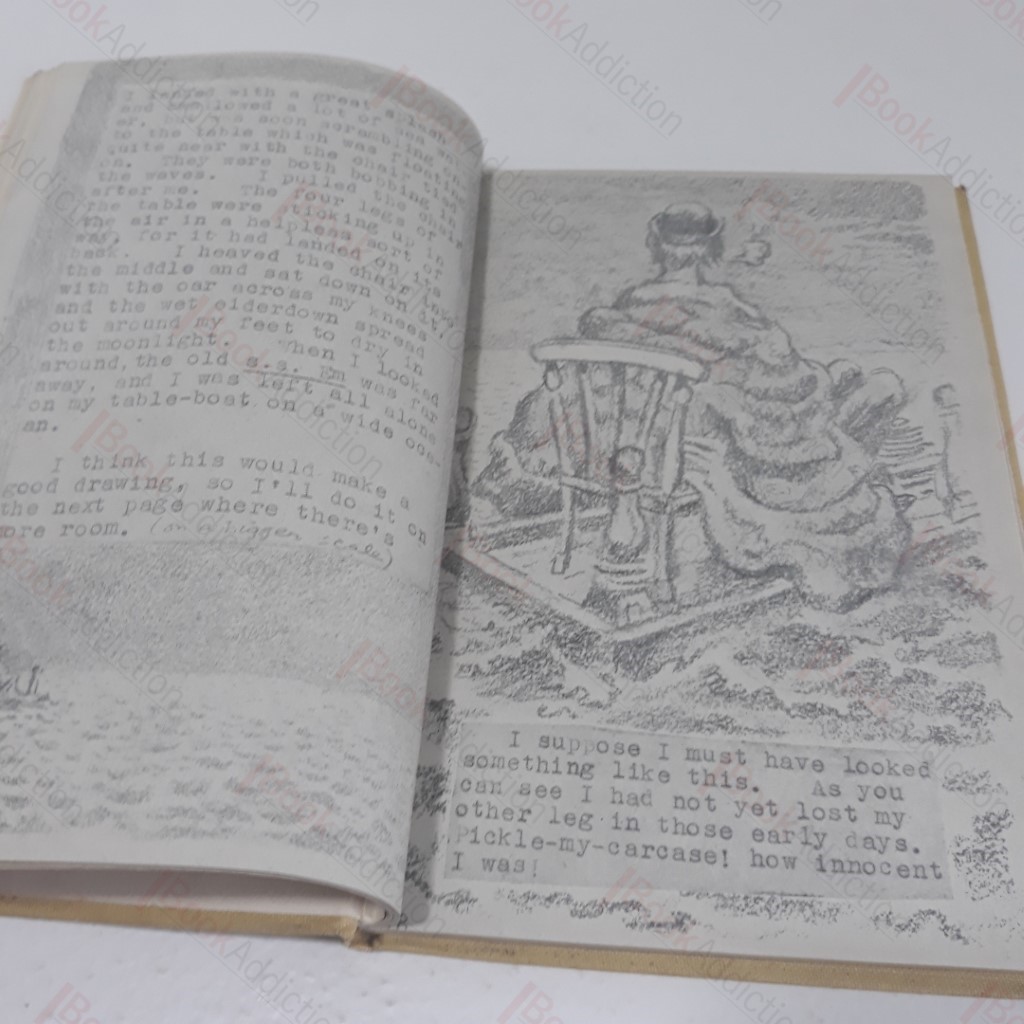 I landed with a great splash,
and swallowed a lot of sea wat-
er, but was soon scrambling on
to the table which was floating
quite near with the chair tied
on. They were both bobbing in
the waves. I pulled the chair
after me. The four legs of
the table were sticking up in
the air in a helpless sort of
way, for it had landed on its
back. I heaved the chair into
the middle and sat down on it,
with the oar across my knees
and the wet eiderdown spread
out around my feet to dry in
the moonlight. When I looked
around, the old s.s. Em was far
away, and I was left all alone
on my table-boat on a wide oce-
an.
I think this would make a
good drawing, so I'll do it on
the next page where there's
ore room. (on a bigger scale)
I suppose I must have looked
something like this. As you
can see I had not yet lost my
other leg in those early days.
Pickle-my-carcase! how innocent
I was!
BookAddiction